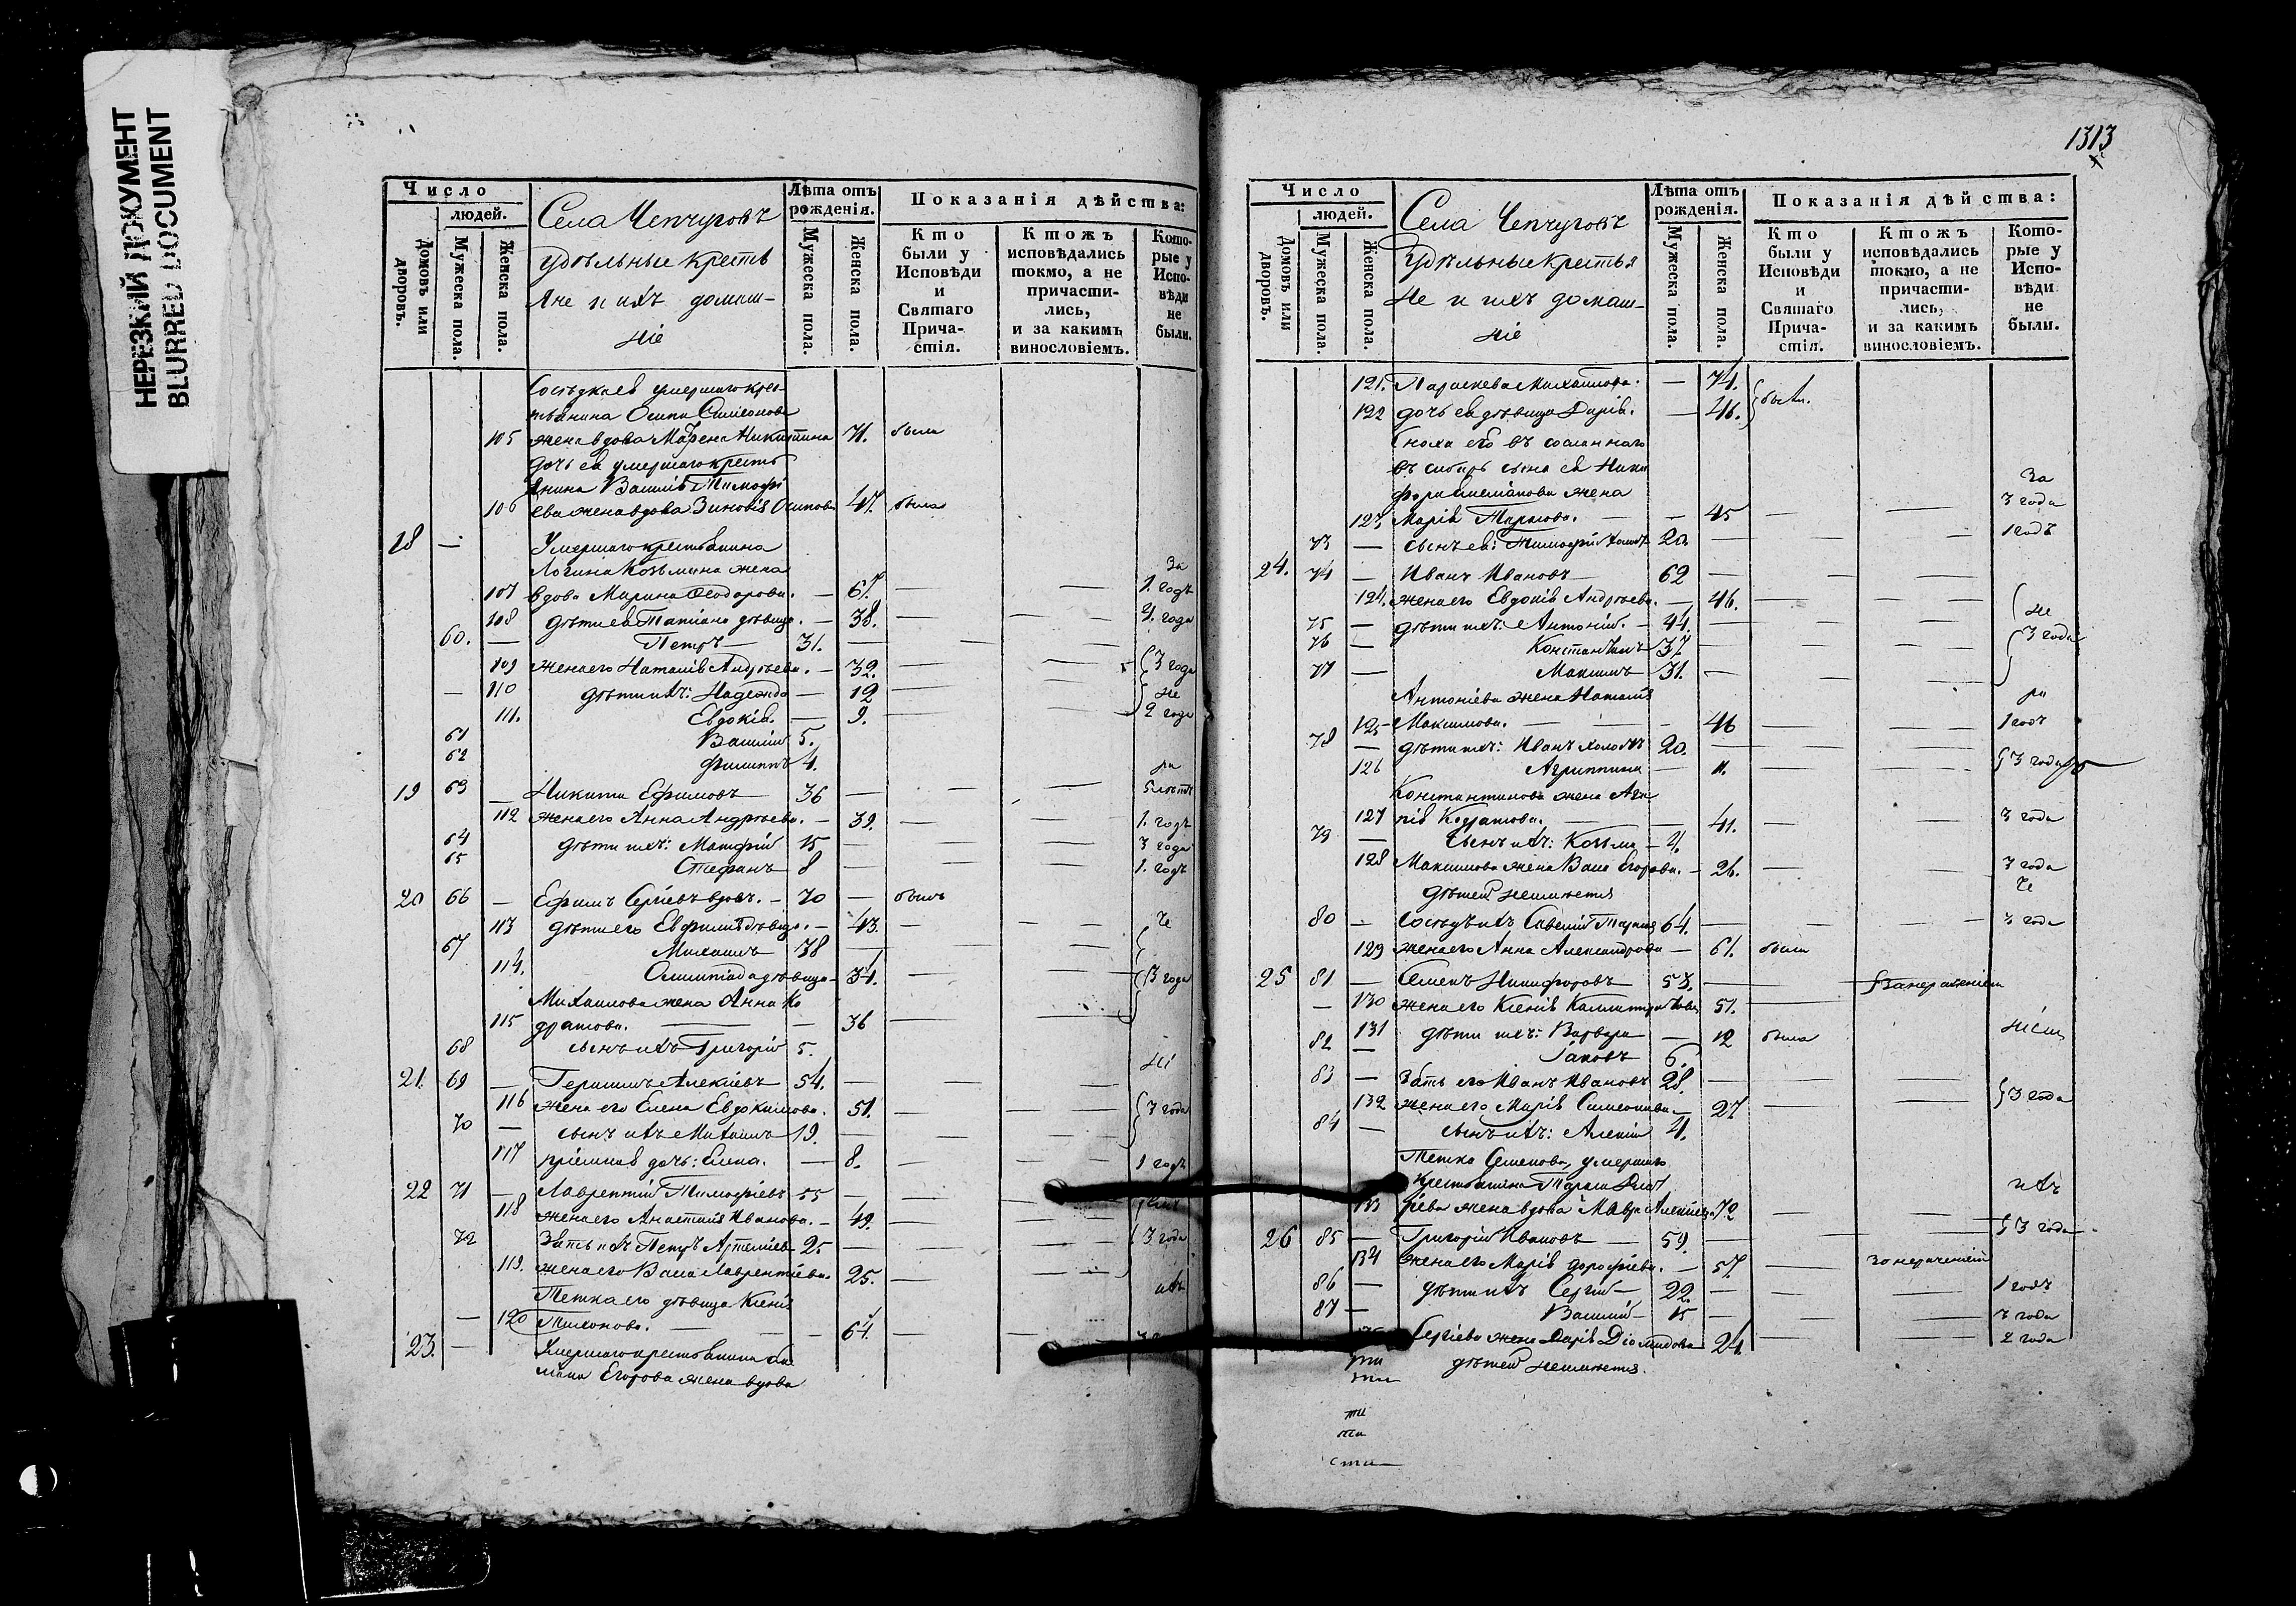 НЕРЕЗКИЙ ДОКУМЕНТ
BLURRED DOCUMENT
Число
людей.
Домовъ или дворовъ.
Мужеска пола.
Женска пола.
Села Чепчуговъ
Удѣльные кресть
яне и ихъ домаш-
ніе
Лѣта отъ
рожденія.
Мужеска пола.
Женска пола.
Показанія дѣйства:
Кто
были у
Исповѣди
и
Святаго
Прича-
стія.
Ктожъ
исповѣдались
токмо, а не
причасти-
лись,
и за какимъ
винословіемъ.
Кото-
рые у
Испо-
вѣди
не
были.
Сосѣдка ея умершаго крес-
тьянина Осипа Симеонова
105 жена вдова Никитина 71. была
дочь ея умершаго кресть
янина Василія Тимофѣ
106 ева жена вдова Зиновія Осипова 47. была
18 — Умершаго крестьянина
Логина Козьмина жена За
107 вдова Марина Ѳеодорова. — 67. — — 1. годъ
108 дѣти ея Татіана дѣвица. — 38. — — 4. года
60. — Петръ — 31. —
109 жена его Наталія Андреева. — 32. — — 3 года
— 110 дѣти ихъ: Надежда — 12 — — не
111. Евдокія. — 9. — — 2 года
61 Василій 5.
62 Филиппъ 4. ра
19 63 — Никита Ефимовъ 36 — — — 5 лѣтъ
112 жена его Анна Андреева. — 39. — — 1. годъ
64 дѣти ихъ: Матфій 15 — — 3 года
65 Стефанъ 8 — — 1. годъ
20 66 — Ефимъ Сергіевъ вдовъ. — 70 — былъ
113 дѣти его Евфимія дѣвица. — 43. — — че
67 Михаилъ 38 —
114. Олимпіада дѣвица — 34. — — 3 года
Михаилова жена Анна Ко
115 дратова. — — 36 — —
68 сынъ ихъ Григорій 5. ні
21. 69 — Герасимъ Алексіевъ 54. — — —
116 жена его Елена Евдокимова. 51. — — 3 года
70 — сынъ ихъ Михаилъ 19. — —
117 пріемная дочь: Елена. — 8. — — 1 годъ
22 71 — Лаврентій Тимофіевъ 55 —
118 жена его Анастасія Иванова. — 49. — —
72 Зять ихъ Петръ 25 — — 3 года
119. жена его Васса Лаврентіева. 25. — —
Тетка его дѣвица Ксенія ихъ
— 120 Тихонова. — — 61. — —
23. — Умершаго крестьянина
Егорова жена вдова
1313
Число
людей.
Домовъ или дворовъ.
Мужеска пола.
Женска пола.
Села Чепчуговъ
Удѣльные крестья
не и ихъ домаш-
ніе
Лѣта отъ
рожденія.
Мужеска пола.
Женска пола.
Показанія дѣйства:
Кто
были у
Исповѣди
и
Святаго
Прича-
стія.
Ктожъ
исповѣдались
токмо, а не
причасти-
лись,
и за какимъ
винословіемъ.
Кото-
рые у
Испо-
вѣди
не
были.
121. Параскева Михаилова. — 74.
122 дочь ея дѣвица Дарія. — 46. были.
Сноха сосланнаго
въ сибирь сына ея Ники За
фора жена 3 года
123 Марія Тарасова. — — 45 — —
73 — сынъ ея: Тимофій холостъ 20. — — 1 годъ
24. 74 — Иванъ Ивановъ — 62 — — —
124. жена его Евдокія Андреева. — 46. — — не
75 — дѣти ихъ: Антоній. — 44. — — 3 года
76 — Константинъ 37. — —
77 — Максимъ 31. — —
Антоніева жена Наталія ра
125 Максимова. — — — 46 — — 1 годъ
78 — дѣти ихъ: Иванъ холостъ 20. — —
126 Агриппина — 11. — — 3 года
Константинова жена Ага
127 пія Кодратова. — — 41. — — 3 года
79 — сынъ ихъ: Козьма — 4.
128 Максимова жена Васса Егорова. — 26. — — 3 года
дѣтей неимѣется че
80 — Сосѣдъ ихъ Савелій 64. — — — 3 года
129 жена его Анна Александрова — 61. была
25 81 — Семенъ Никифоровъ — 53. — за нераченіемъ
— 130 жена его Ксенія 51. —
131 дѣти ихъ: Варвара — 12 была ніем
82 — Іаковъ 6.
83 — Зять его Иванъ Ивановъ 28. — — —
132 жена его Марія Симеонова — 27 — — 3 года
84 — сынъ ихъ: Алексій 4.
Тетка Семенова, умершаго
крестьянина Тараса ихъ
133 жена вдова Мавра Алексіева 72 — —
26 85 — Григорій Ивановъ — 59. — — 3 года
134 жена его Марія Дорофіева. — 57. — за нераченіем
86 — дѣти ихъ Сергій — 22. — — 1 годъ
87 — Василій — 15 — — 3 года
Сергіева жена Дарія Діомидова 24. — — 2 года
дѣтей неимѣется.
ти
ти
сти